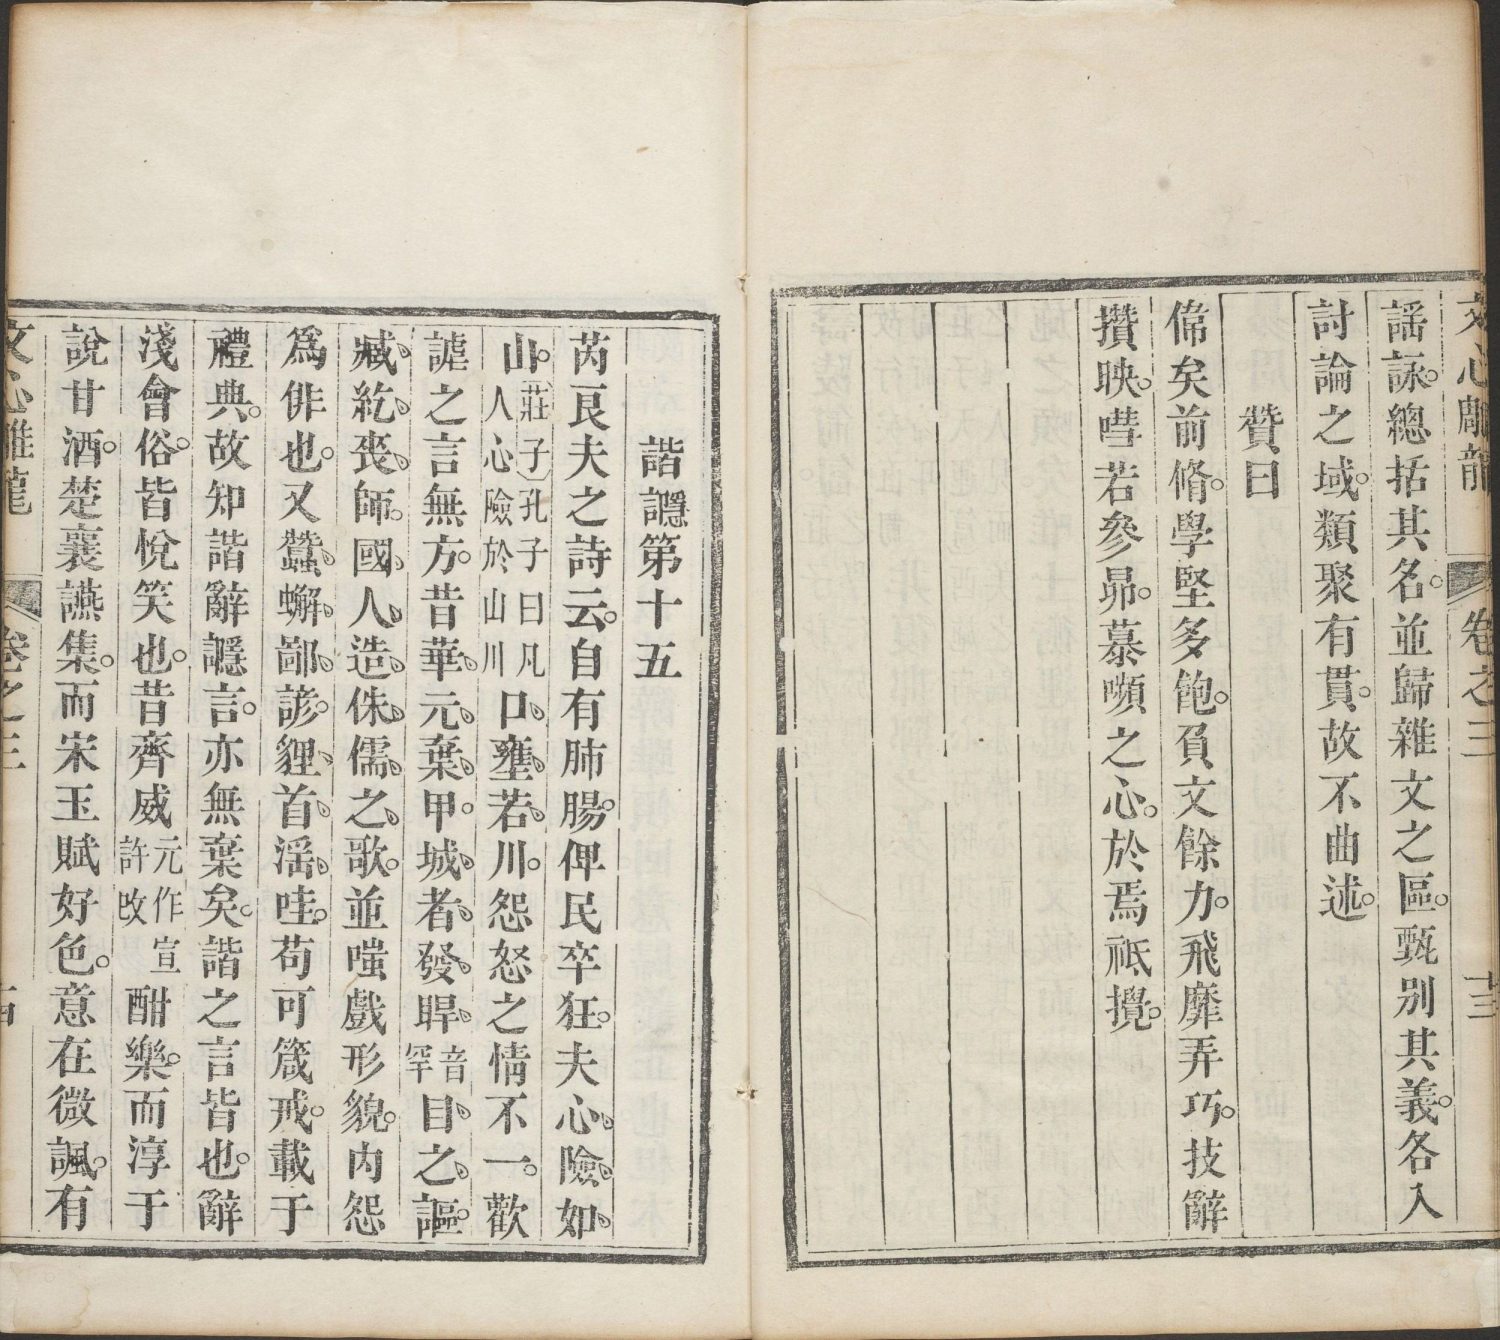 文心雕龍 卷之三 十三
謡詠。總括其名。並歸雜文之區。甄别其義。各入
討論之域。類聚有貫。故不曲述。
贊曰
偉矣前脩。學堅多飽。負文餘力。飛靡弄巧。技辭
攢映。嘒若參昴。慕嚬之心。於焉祗攪。
諧讔第十五
芮良夫之詩云。自有肺腸。俾民卒狂。夫心險如
山。莊子孔子曰凡人心險於山川口壅若川。怨怒之情不一。歡
謔之言無方。昔華元棄甲。城者發睅音罕目之謳。
臧紇喪師。國人造侏儒之歌。並嗤戲形貌。内怨
爲俳也。又蠶蠏鄙諺。貍首淫哇。苟可箴戒。載于
禮典。故知諧辭讔言。亦無棄矣。諧之言皆也。辭
淺會俗。皆悅笑也。昔齊威元作宣許改酣樂。而淳于
說甘酒。楚襄讌集。而宋玉賦好色。意在微諷。有
文心雕龍 卷之三